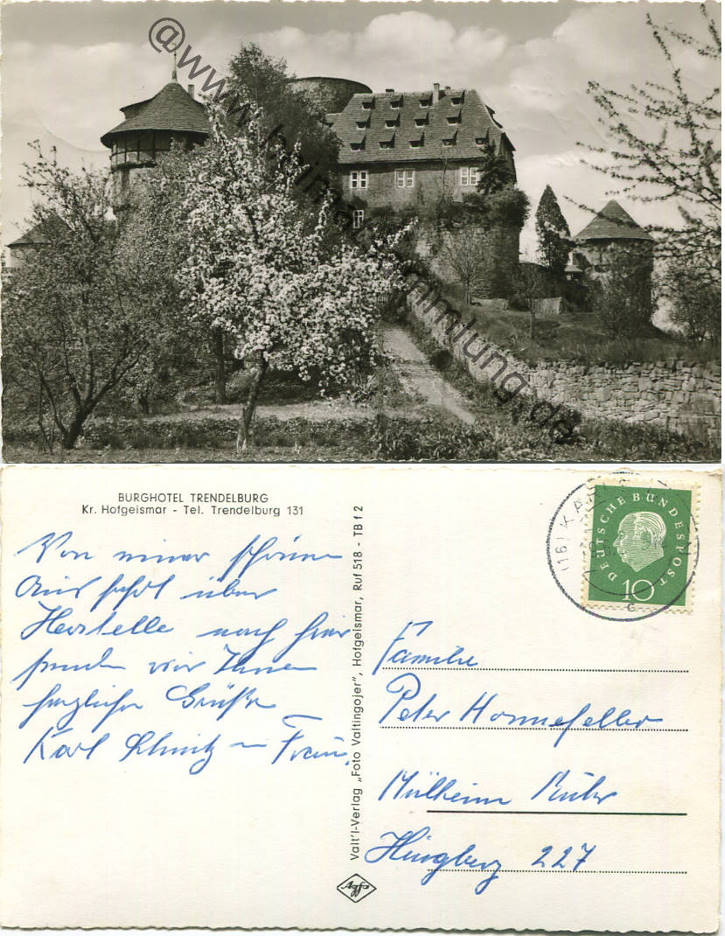 @www.heimatsammlung.de
BURGHOTEL TRENDELBURG
Kr. Hofgeismar - Tel. Trendelburg 131
Von einer schönen
Ausfahrt über
Herstelle nach hier
senden wir Ihnen
herzliche Grüße
Karl Schmitz u Frau.
Valt'l-Verlag „Foto Valtingojer", Hofgeismar, Ruf 518 - TB f 2
Agfa
(16) KA
DEUTSCHE BUNDESPOST
10
c
Familie
Peter Honnefeller
Mülheim Ruhr
Hingberg 227